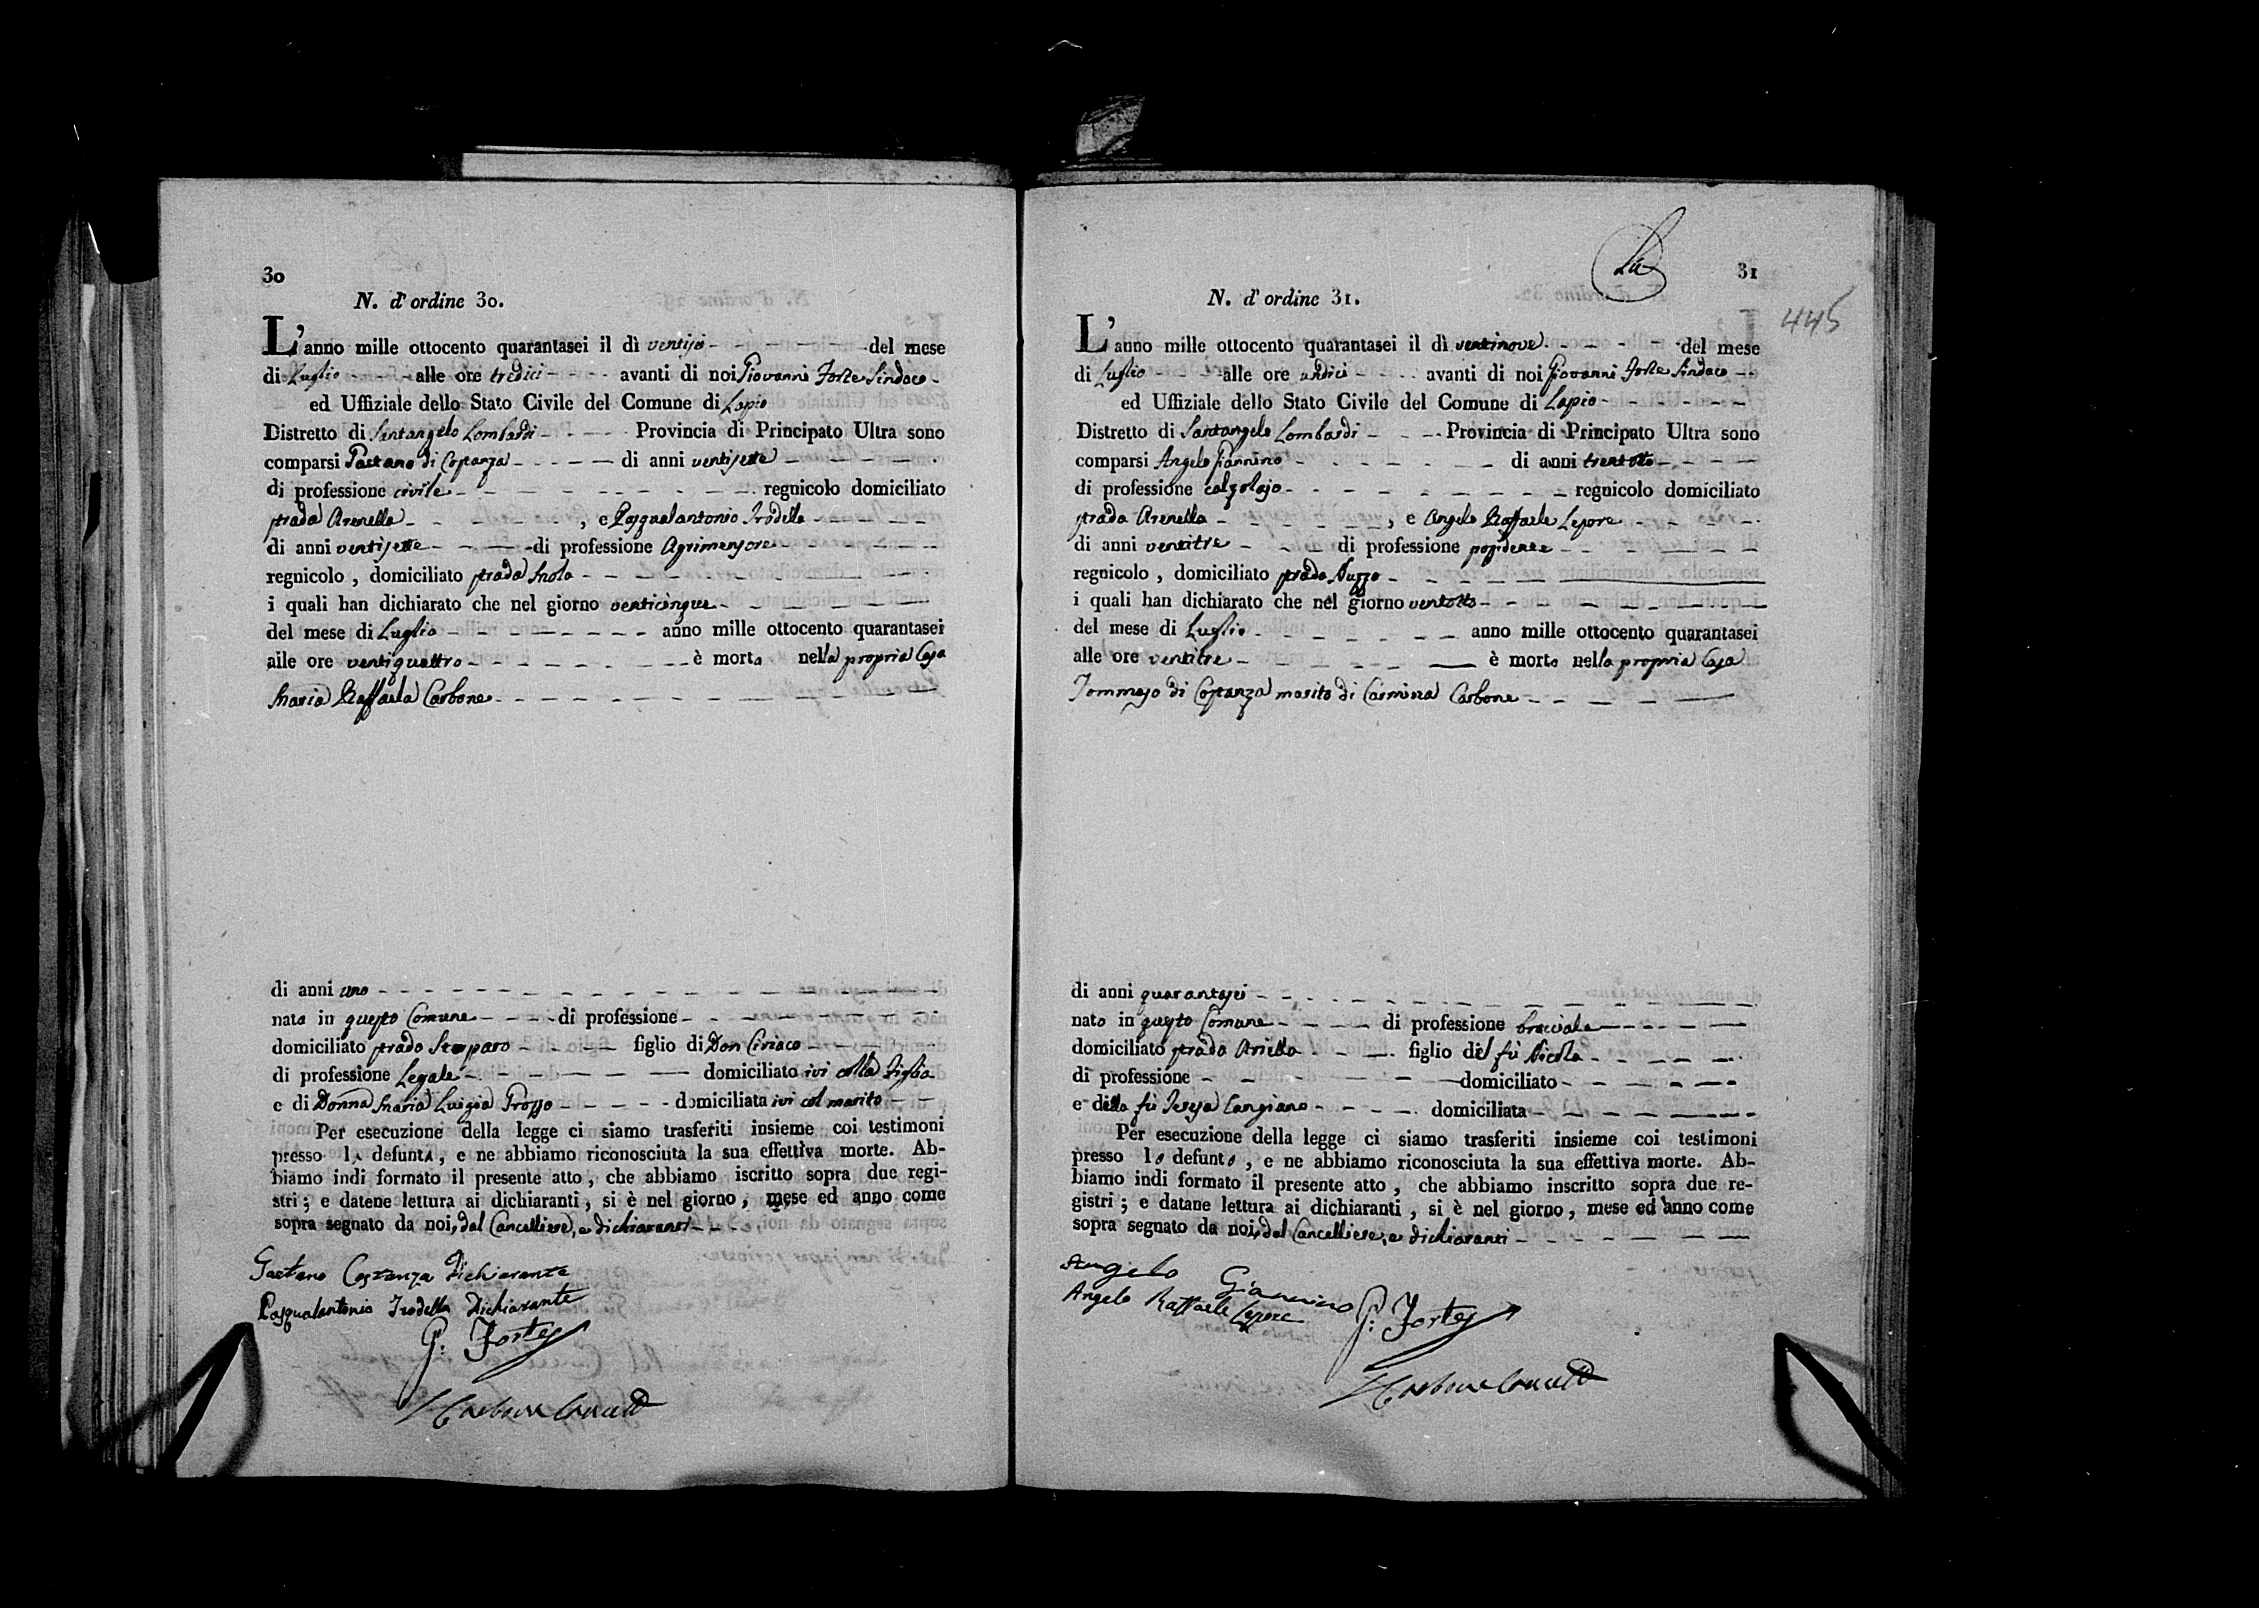 30
N. d'ordine 30.
L'anno mille ottocento quarantasei il dì ventisei del mese
di Luglio alle ore tredici avanti di noi Giovanni Forte Sindaco
ed Uffiziale dello Stato Civile del Comune di Lapio
Distretto di Santangelo Lombardi Provincia di Principato Ultra sono
comparsi Gaetano di Costanza di anni ventisette
di professione civile regnicolo domiciliato
strada Arenella, e Pasqualantonio Trodella
di anni ventisette di professione Agrimensore
regnicolo, domiciliato strada
i quali han dichiarato che nel giorno venticinque
del mese di Luglio anno mille ottocento quarantasei
alle ore ventiquattro è morta nella propria Casa
Maria Raffaela Carbone
di anni uno
nata in questo Comune di professione
domiciliato strada figlio di Don Ciriaco
di professione Legale domiciliato ivi colla figlia
e di Donna Maria Luigia domiciliata ivi col marito
Per esecuzione della legge ci siamo trasferiti insieme coi testimoni
presso la defunta, e ne abbiamo riconosciuta la sua effettiva morte. Ab-
biamo indi formato il presente atto, che abbiamo iscritto sopra due regi-
stri; e datene lettura ai dichiaranti, si è nel giorno, mese ed anno come
sopra segnato da noi, dal Cancelliere, e dichiaranti
Gaetano Costanza Dichiarante
Pasqualantonio Trodella Dichiarante
G. Forte
Carbone
31
445
N. d'ordine 31.
L'anno mille ottocento quarantasei il dì ventinove del mese
di Luglio alle ore undici avanti di noi Giovanni Forte Sindaco
ed Uffiziale dello Stato Civile del Comune di Lapio
Distretto di Santangelo Lombardi Provincia di Principato Ultra sono
comparsi Angelo Giannino di anni trentotto
di professione calzolajo regnicolo domiciliato
strada Arenella, e Angelo Raffaele Lepore
di anni ventitre di professione possidente
regnicolo, domiciliato strada
i quali han dichiarato che nel giorno ventotto
del mese di Luglio anno mille ottocento quarantasei
alle ore ventitre è morto nella propria Casa
Tommaso di Costanza marito di Carmina Carbone
di anni quarantasei
nato in questo Comune di professione bracciale
domiciliato strada Ariella figlio del fù Nicola
di professione domiciliato
e della fù Teresa Cangiano domiciliata
Per esecuzione della legge ci siamo trasferiti insieme coi testimoni
presso lo defunto, e ne abbiamo riconosciuta la sua effettiva morte. Ab-
biamo indi formato il presente atto, che abbiamo inscritto sopra due re-
gistri; e datane lettura ai dichiaranti, si è nel giorno, mese ed anno come
sopra segnato da noi, dal Cancelliere, e dichiaranti
Angelo Giannino
Angelo Raffaele Lepore
G. Forte
Carbone